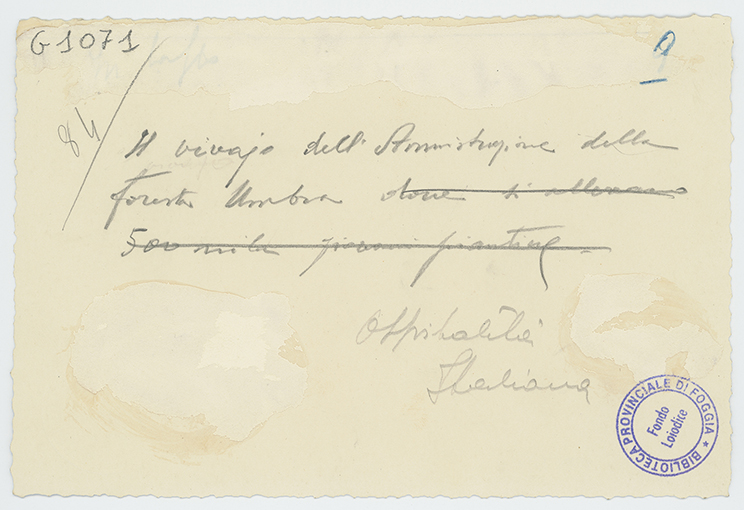 G 1071
84
Il vivajo dell'Amministrazione della
foresta Umbra dove si allevano
500 mila giovani piantine
Ospitalità
Italiana
BIBLIOTECA PROVINCIALE DI FOGGIA *
Fondo
Loiodice